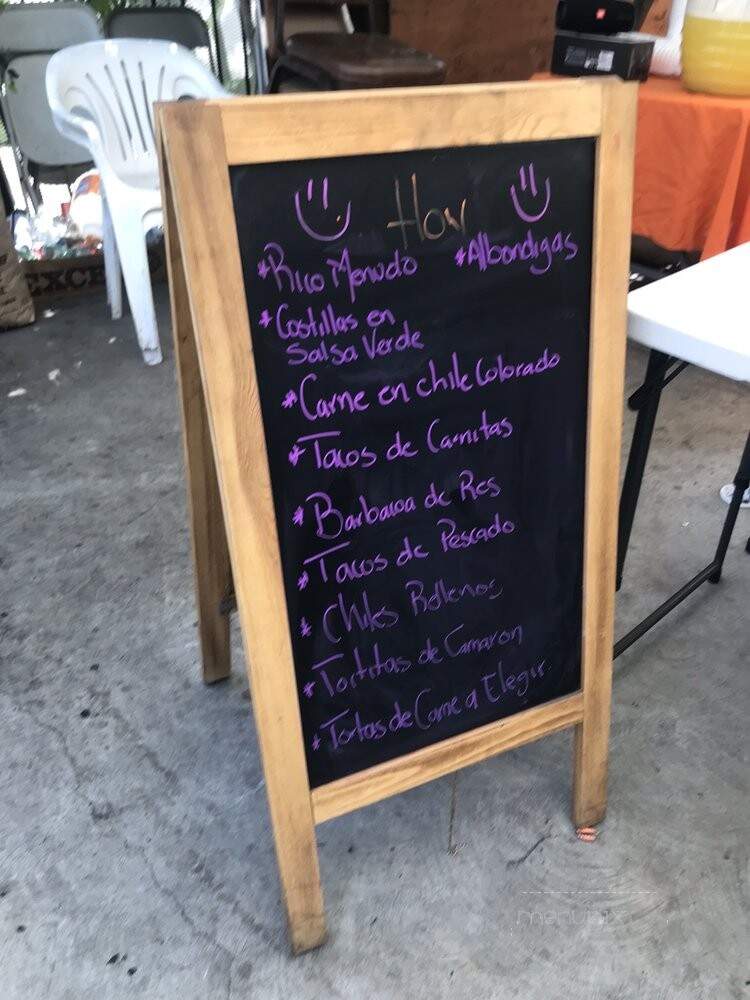 Hoy
*Rico Menudo *Albondigas
*Costillas en
Salsa Verde
*Carne en chile Colorado
*Tacos de Carnitas
*Barbacoa de Res
*Tacos de Pescado
*Chiles Rellenos
*Tortitas de Camaron
*Tortas de Carne a Elegir.
EXCE
JBL